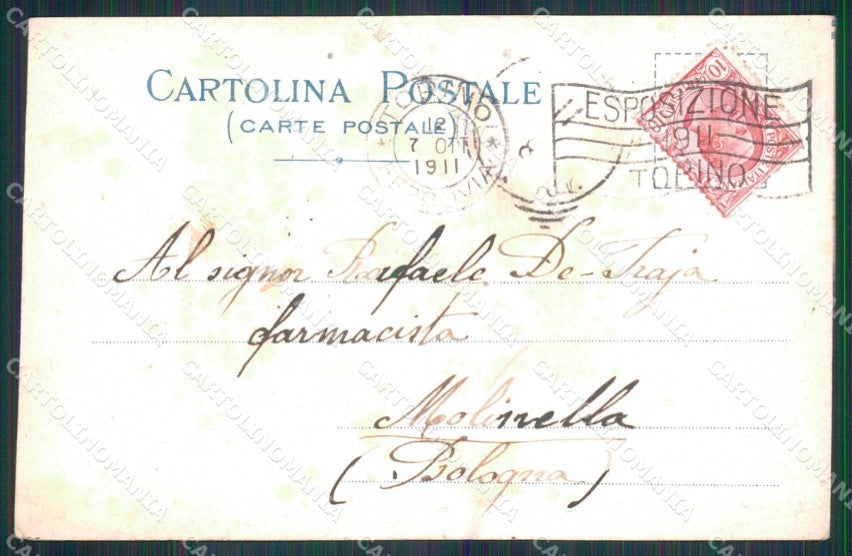 CARTOLINA POSTALE
(CARTE POSTALE)
TORINO
12
7 OTT
1911
FERROVIA
ESPOSIZIONE
911
TORINO
10
Al signor Rafaele De-Traja
farmacista
Molinella
(Bologna)
CARTOLINOMANIA